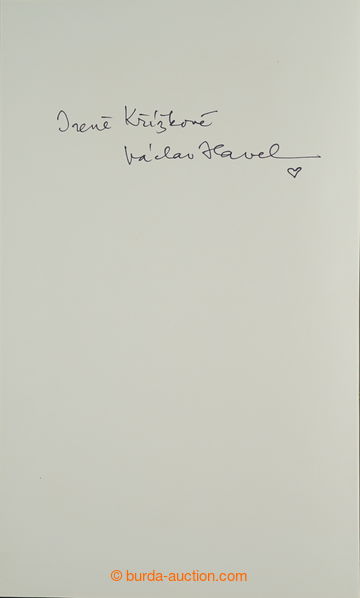 Ireně Křížkové
Václav Havel
© burda-auction.com